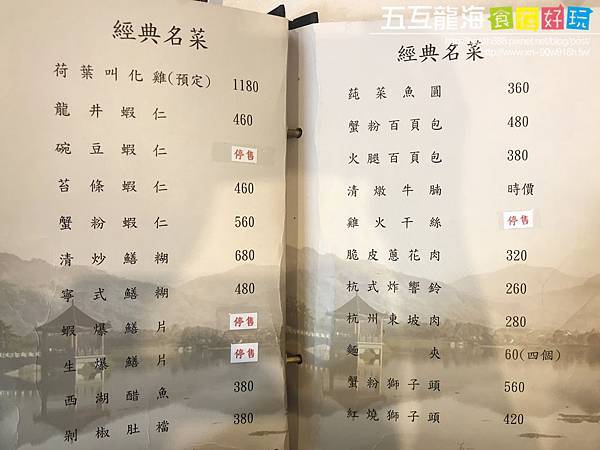 五互龍海食在好玩
經典名菜
荷葉叫化雞(預定) 1180
龍井蝦仁 460
碗豆蝦仁 停售
苔條蝦仁 460
蟹粉蝦仁 560
清炒鱔糊 680
寧式鱔糊 480
蝦爆鱔片 停售
生爆鱔片 停售
西湖醋魚 380
剁椒肚襠 380
經典名菜
蒓菜魚圓 360
蟹粉百頁包 480
火腿百頁包 380
清燉牛腩 時價
雞火干絲 停售
脆皮蔥花肉 320
杭式炸響鈴 260
杭州東坡肉 280
麵夾 60(四個)
蟹粉獅子頭 560
紅燒獅子頭 420